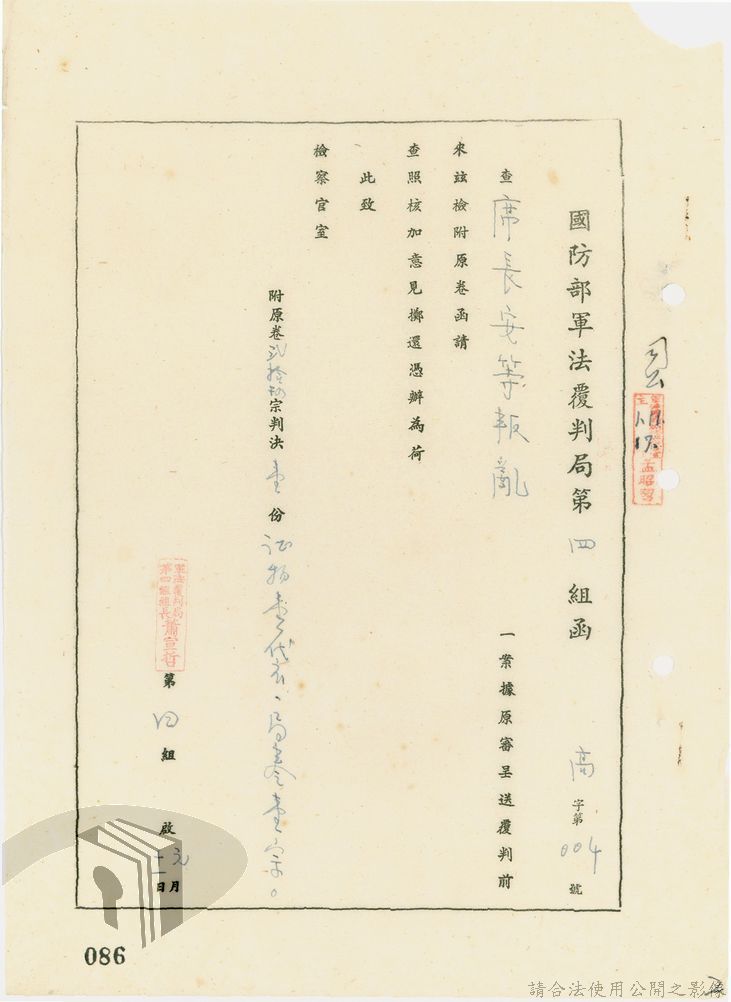 國防部軍法覆判局第四組函 高字第004號
查席長安等叛亂一案據原審呈送覆判前
來玆檢附原卷函請
查照核加意見擲還憑辦為荷
此致
檢察官室
附原卷貳拾捌宗判決壹份証物壹代衣、局卷壹宗。
軍法覆判局
第四組組長蕭宣哲
第四組啟 元月十一日
086
請合法使用公開之影像